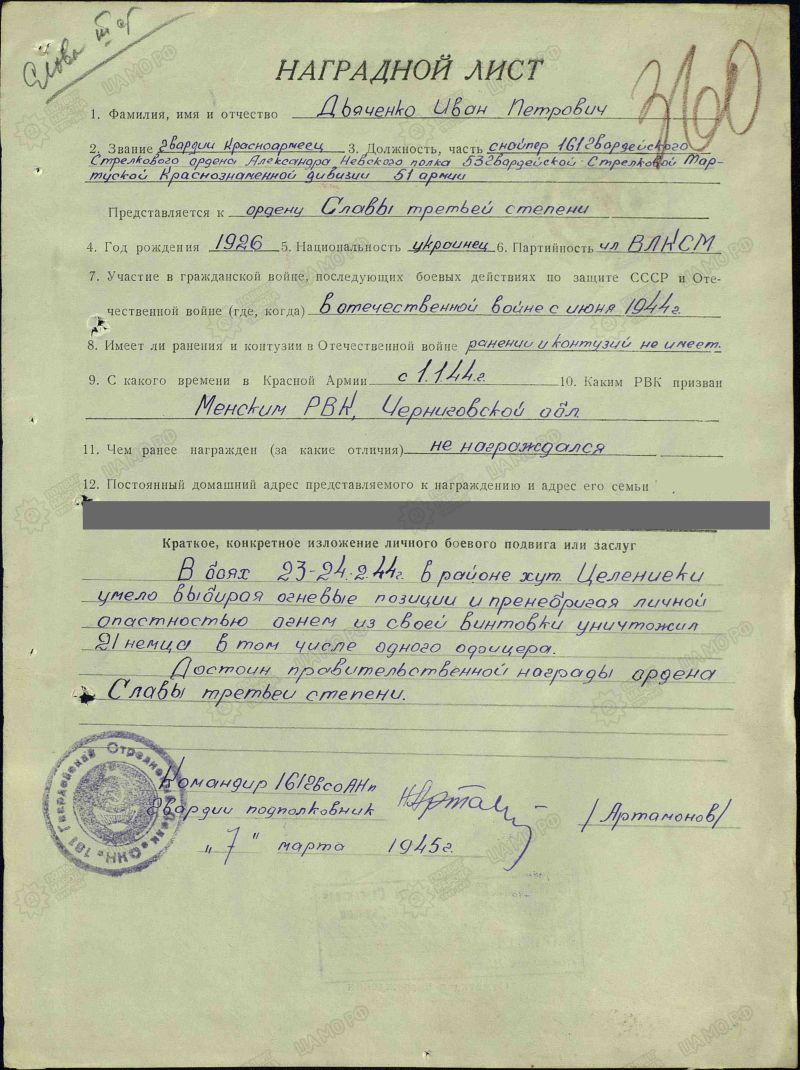 Слова III ст
НАГРАДНОЙ ЛИСТ
360
1. Фамилия, имя и отчество Дьяченко Иван Петрович
2. Звание гвардии Красноармеец 3. Должность, часть снайпер 161 гвардейского
Стрелкового ордена Александра Невского полка 53 гвардейской Стрелковой Тар-
туской Краснознаменной дивизии 51 армии
Представляется к ордену Славы третьей степени
4. Год рождения 1926 5. Национальность украинец 6. Партийность чл ВЛКСМ
7. Участие в гражданской войне, последующих боевых действиях по защите СССР и Оте-
чественной войне (где, когда) в отечественной войне с июня 1944г.
8. Имеет ли ранения и контузии в Отечественной войне ранении и контузий не имеет.
9. С какого времени в Красной Армии с 1.1 44.г. 10. Каким РВК призван
Менским РВК, Черниговской обл
11. Чем ранее награжден (за какие отличия) не награждался
12. Постоянный домашний адрес представляемого к награждению и адрес его семьи
Краткое, конкретное изложение личного боевого подвига или заслуг
В боях 23-24.2.44г. в районе хут. Целениеки
умело выбирая огневые позиции и пренебригая личной
опастностью огнем из своей винтовки уничтожил
21 немца в том числе одного офицера.
Достоин правительственной награды ордена
Славы третьеи степени.
Командир 161 гвсоАНп
гвардии подполковник /Артамонов/
„7" марта 1945г.
161 Гвардейский Стрелковый Полк
ЦАМО.РФ